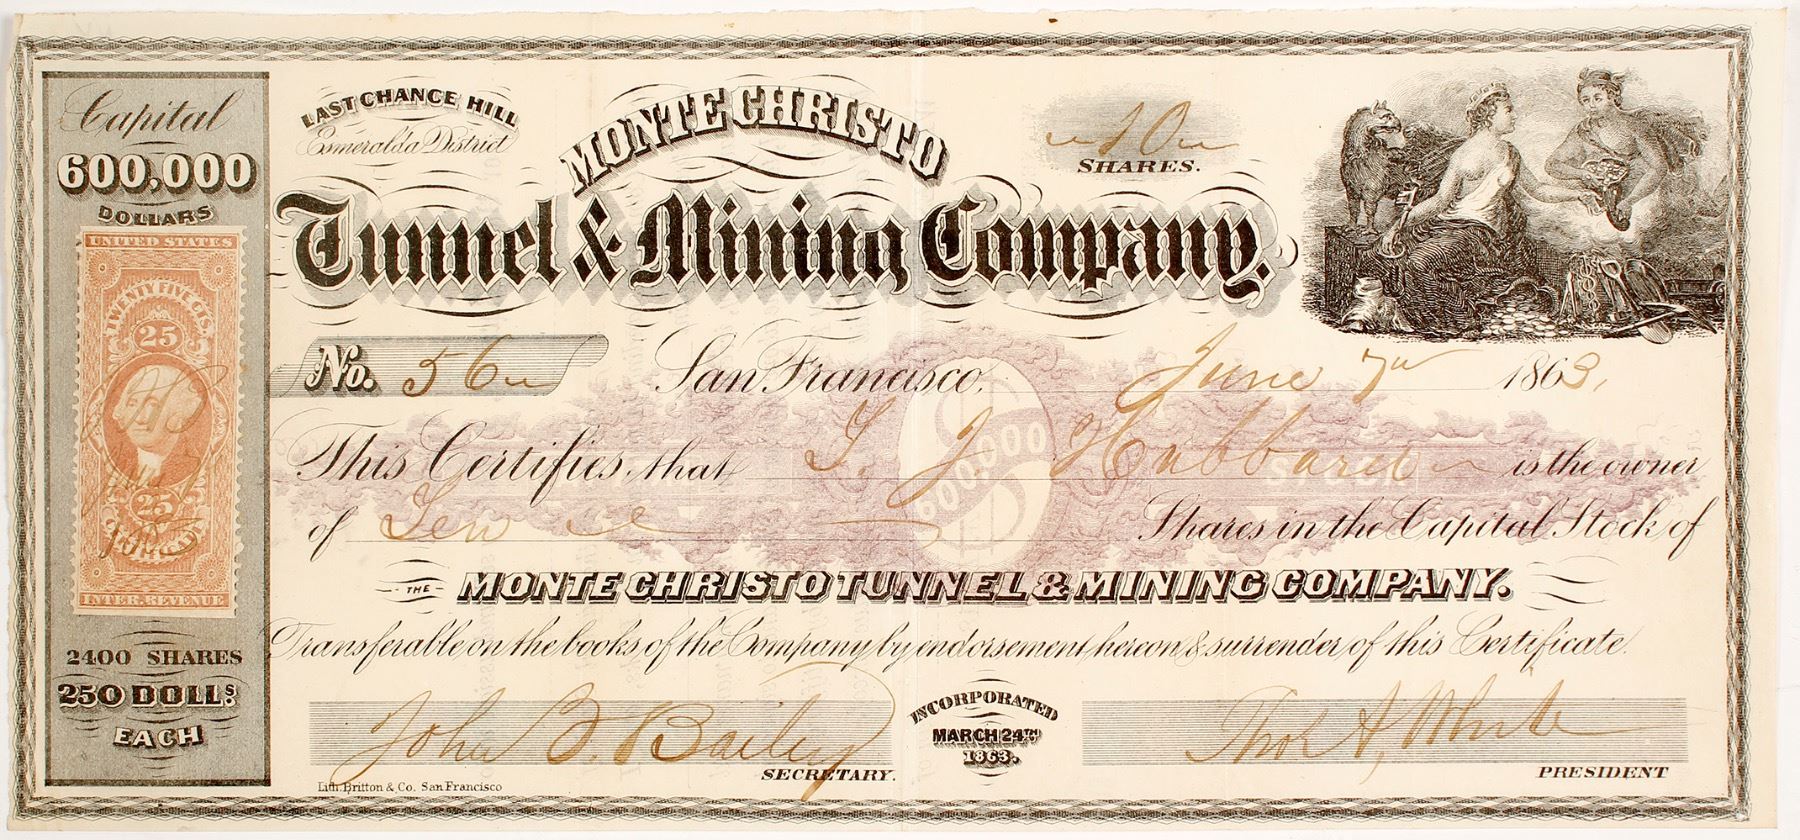 Capital
600,000
DOLLARS
UNITED STATES
TWENTY FIVE CTS.
25
25
INTER. REVENUE
2400 SHARES
250 DOLLS
EACH
LAST CHANCE HILL
Esmeralda District
MONTE CHRISTO
10
SHARES.
Tunnel & Mining Company.
No. 56
San Francisco, June 7th 1863,
This Certifies that J. J. Hubbard is the owner
600,000
STOCK
of Ten Shares in the Capital Stock of
THE MONTE CHRISTO TUNNEL & MINING COMPANY.
Transferable on the books of the Company by endorsement hereon & surrender of this Certificate.
John B. Bailey
SECRETARY.
INCORPORATED
MARCH 24TH
1863.
Thos A. White
PRESIDENT
Lith. Britton & Co. San Francisco